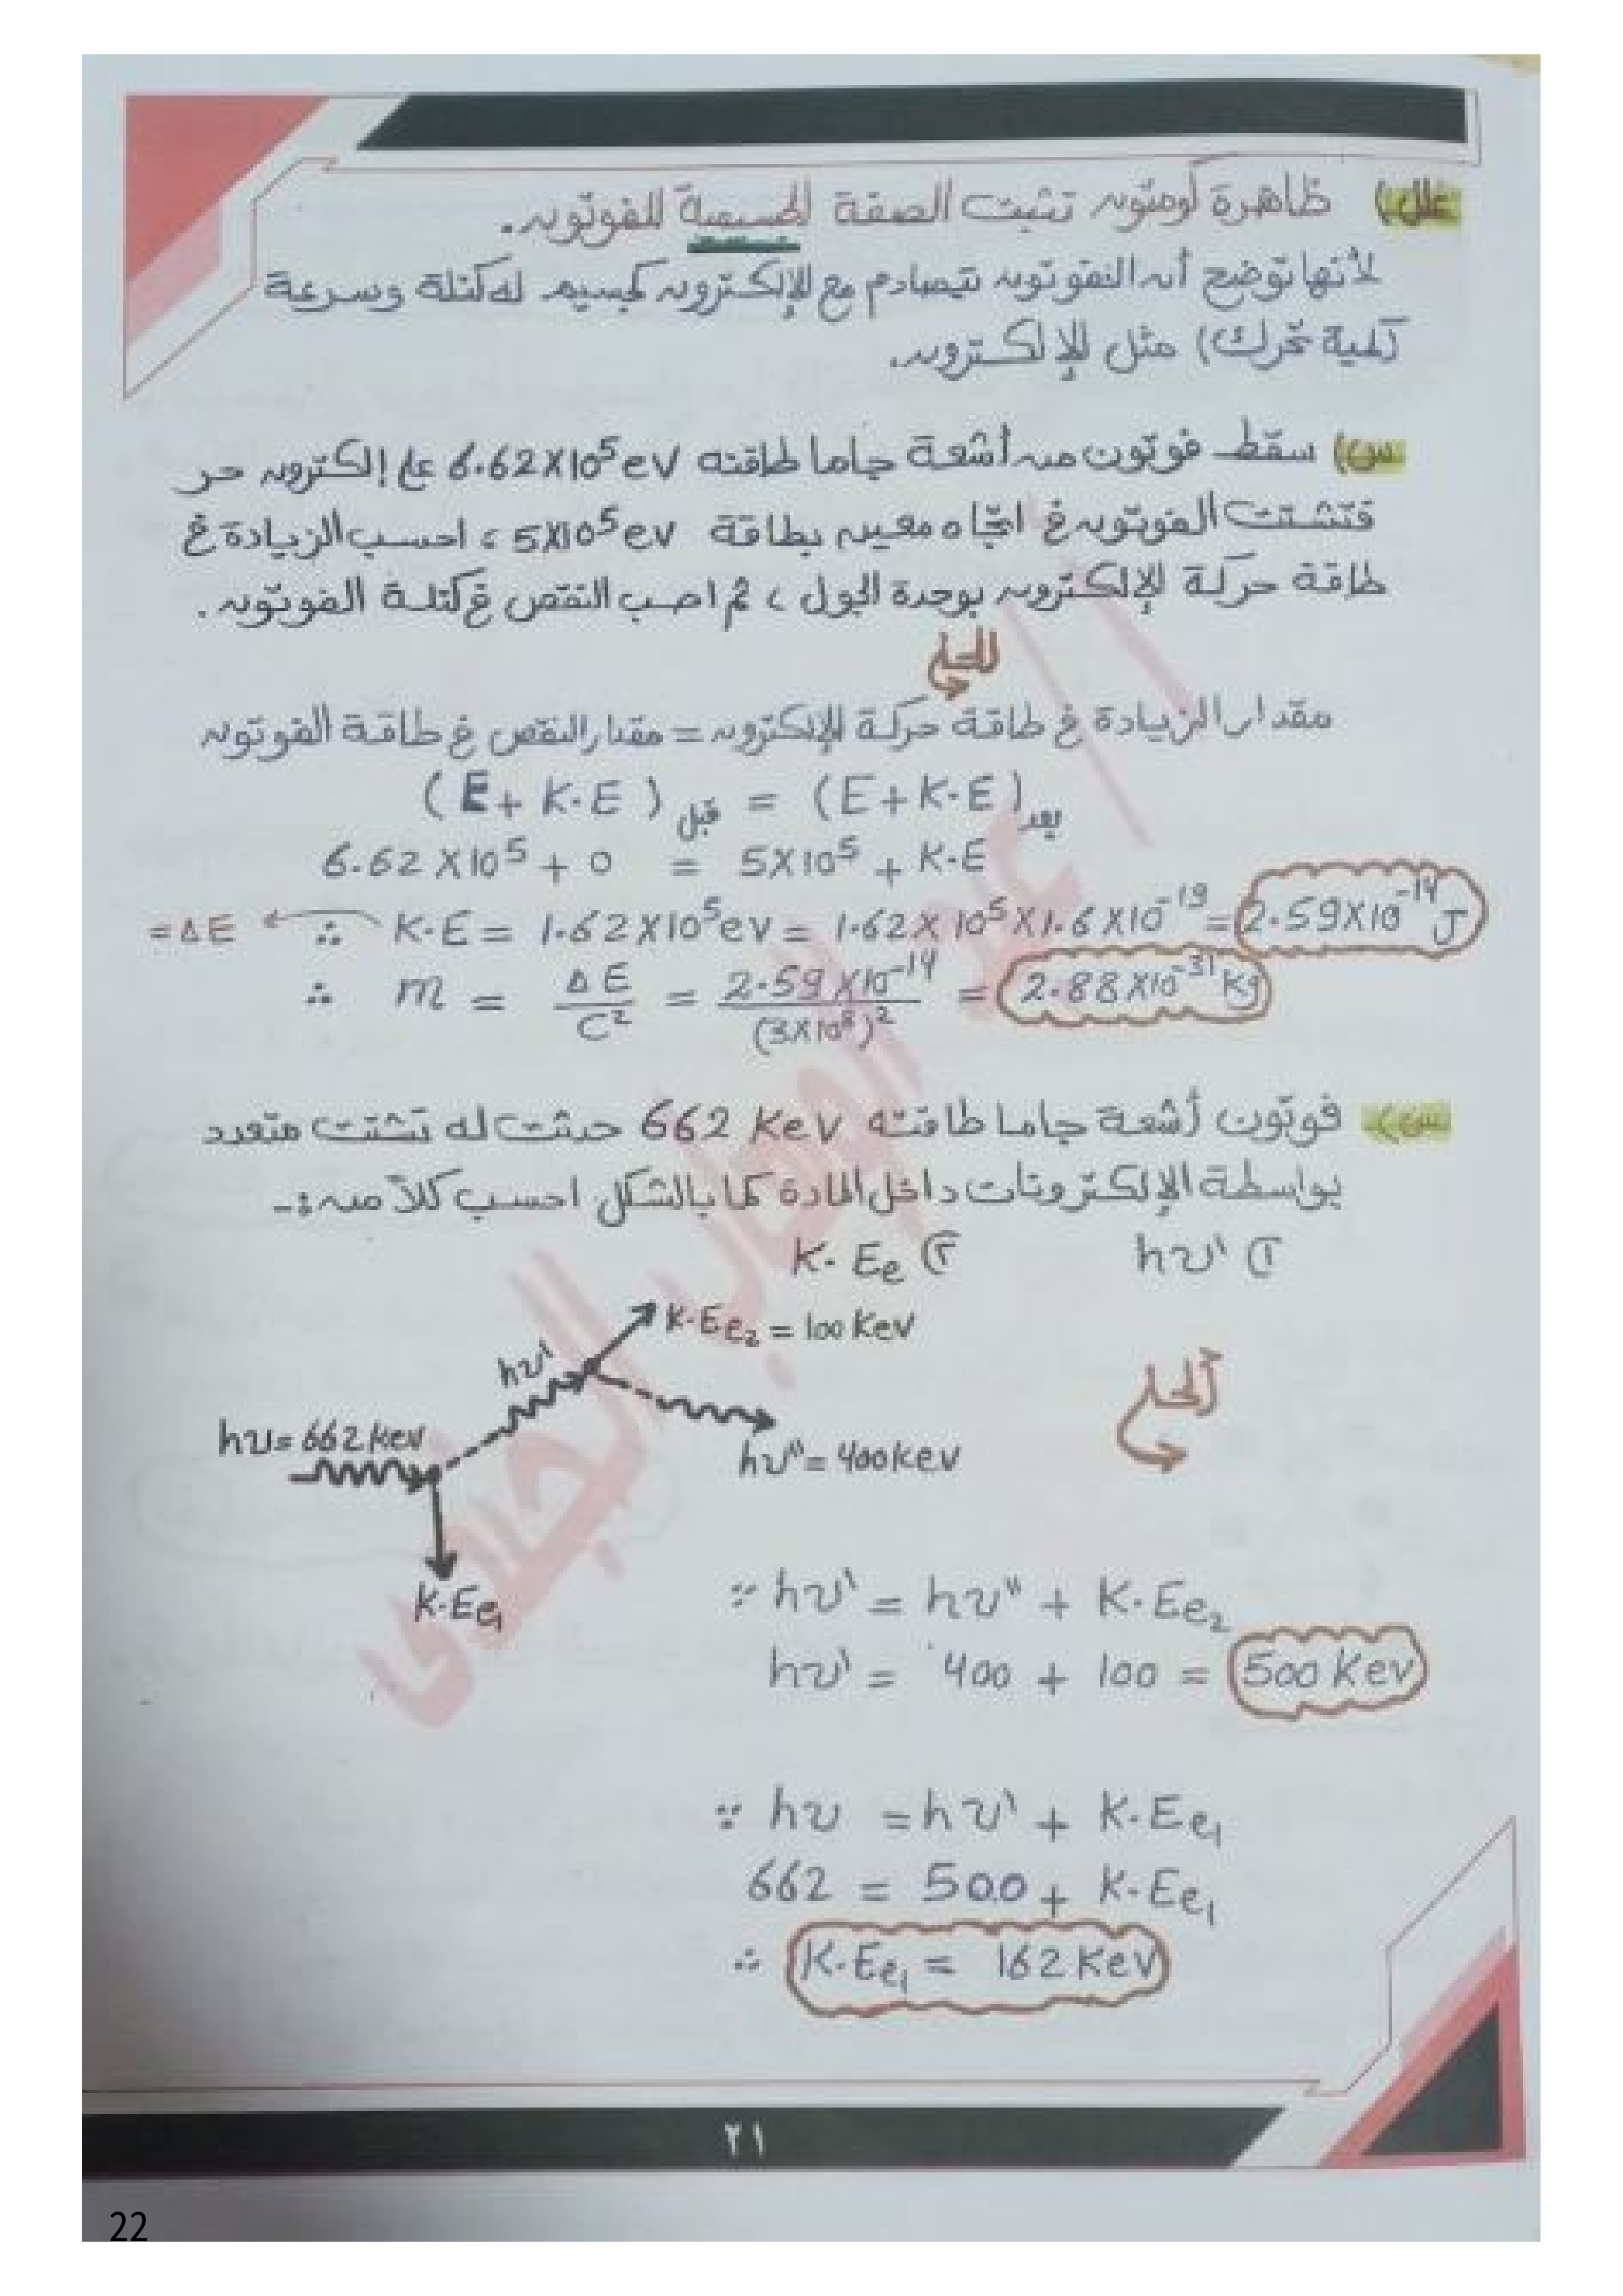 علل) ظاهرة كومتون تثبت الصفة الجسيمية للفوتون.
لأنها توضح أن الفوتون تتصادم مع الإلكترون كجسيم له كتلة وسرعة
(كمية تحرك) مثل الإلكترون.
س) سقط فوتون من أشعة جاما طاقته 6.62X10⁵ eV على إلكترون حر
فتشتت الفوتون في اتجاه معين بطاقة 5X10⁵ eV ، احسب الزيادة في
طاقة حركة الإلكترون بوحدة الجول ، ثم احسب النقص في كتلة الفوتون.
الحل
مقدار الزيادة في طاقة حركة الإلكترون = مقدار النقص في طاقة الفوتون
(E + K.E) قبل = (E + K.E) بعد
6.62 X 10⁵ + 0 = 5X10⁵ + K.E
= ΔE ← ∴ K.E = 1.62X10⁵ eV = 1.62X10⁵X1.6X10⁻¹⁹ = 2.59X10⁻¹⁴ J
∴ m = ΔE / C² = 2.59X10⁻¹⁴ / (3X10⁸)² = 2.88X10⁻³¹ Kg
س) فوتون أشعة جاما طاقته 662 KeV حدثت له تشتت متعدد
بواسطة الإلكترونات داخل المادة كما بالشكل احسب كلاً من :-
١) hυ' ٢) K.Ee
K.Ee₂ = 100 KeV
hυ'
الحل
hυ = 662 KeV
hυ'' = 400 KeV
K.Ee₁
∵ hυ' = hυ'' + K.Ee₂
hυ' = 400 + 100 = 500 KeV
∵ hυ = hυ' + K.Ee₁
662 = 500 + K.Ee₁
∴ K.Ee₁ = 162 KeV
٢١
22